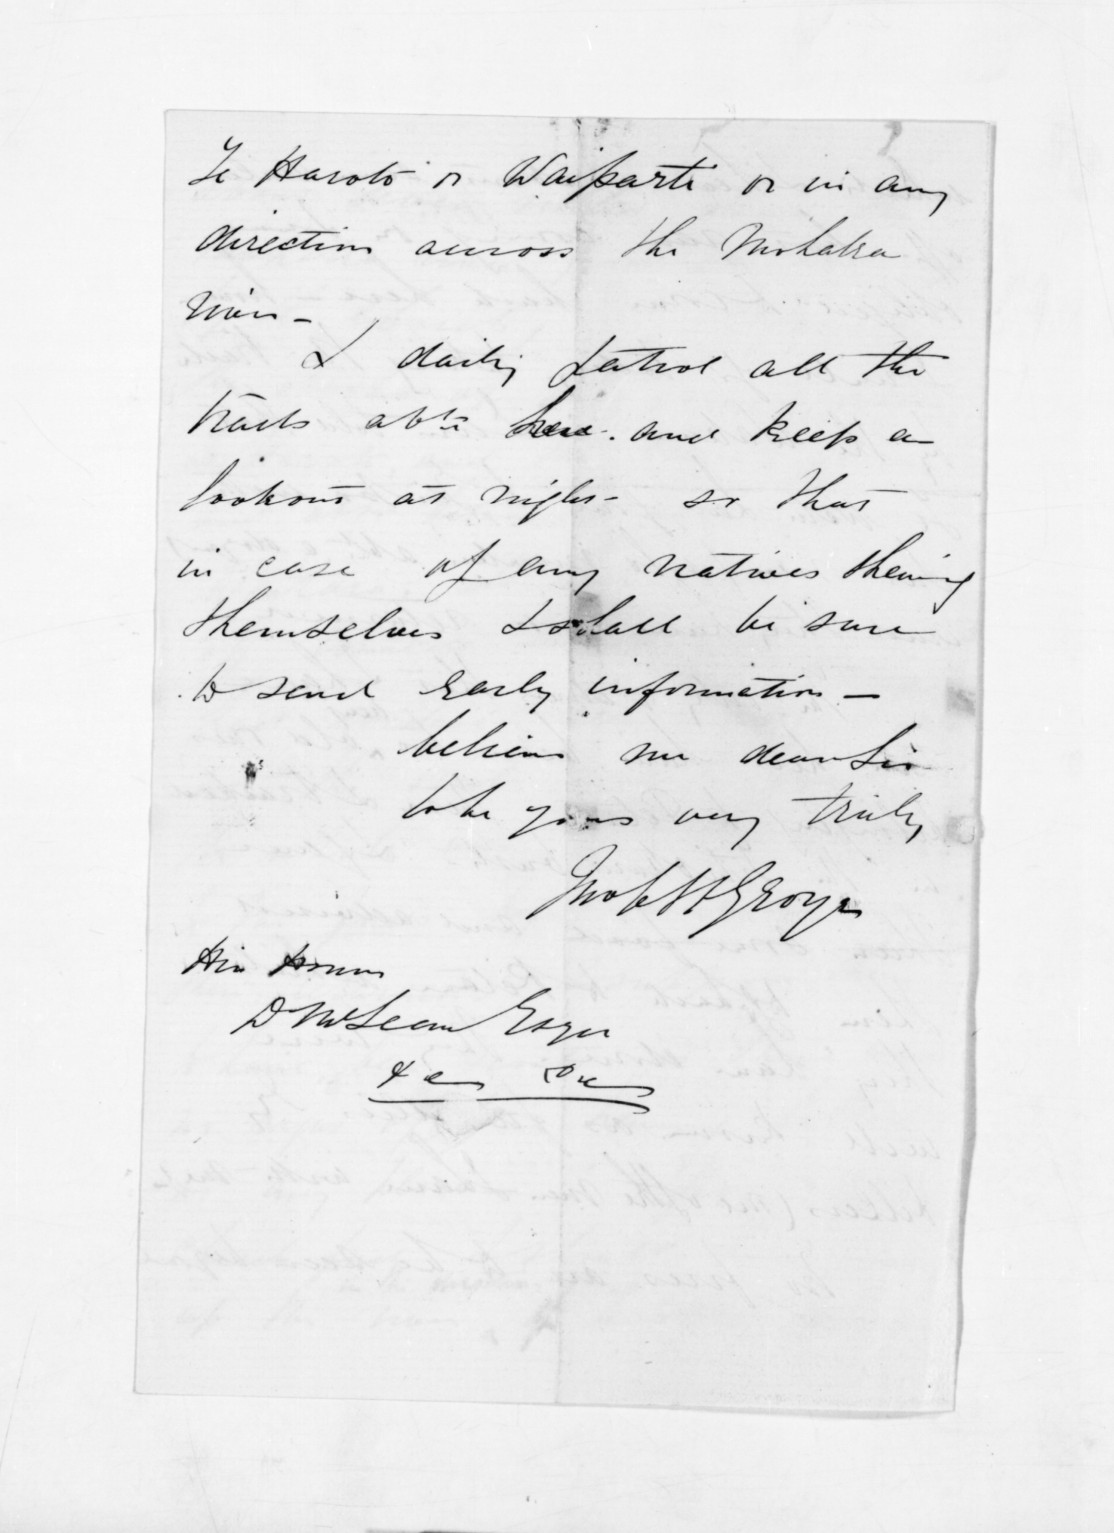 Te Haroto or Waiparti or in any
direction across the Mohaka
River -
I daily patrol all the
tracks abt here. and keep a
lookout at night - so that
in case of any natives shewing
themselves I shall be sure
to send early information -
believe me dear Sir
to be yours very truly
His Honor
D McLean Esqre
&c &c